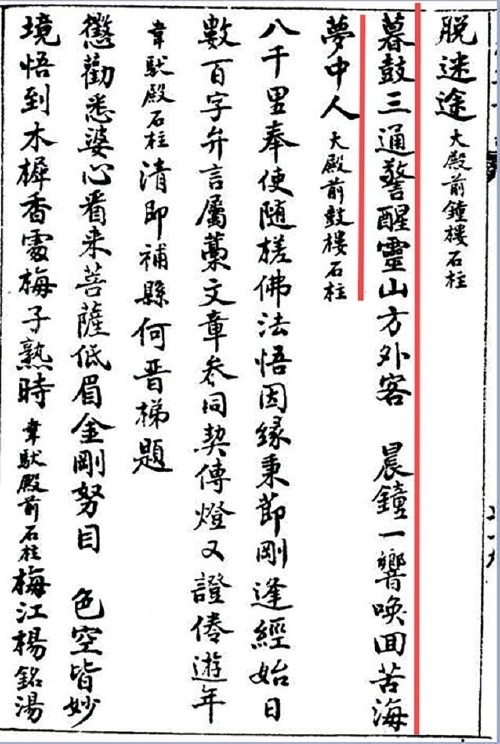 脱迷途大殿前鐘樓石柱
暮鼓三通警醒靈山方外客　晨鐘一響喚回苦海
夢中人大殿前鼓樓石柱
八千里奉使隨槎佛法悟因緣秉節剛逢經始日
數百字弁言屬藁文章叅同契傳燈又證倦遊年
韋馱殿石柱清即補縣何晉梯題
懲勸悉婆心看来菩薩低眉金剛努目　色空皆妙
境悟到木樨香處梅子熟時韋馱殿前石柱梅江楊銘湯